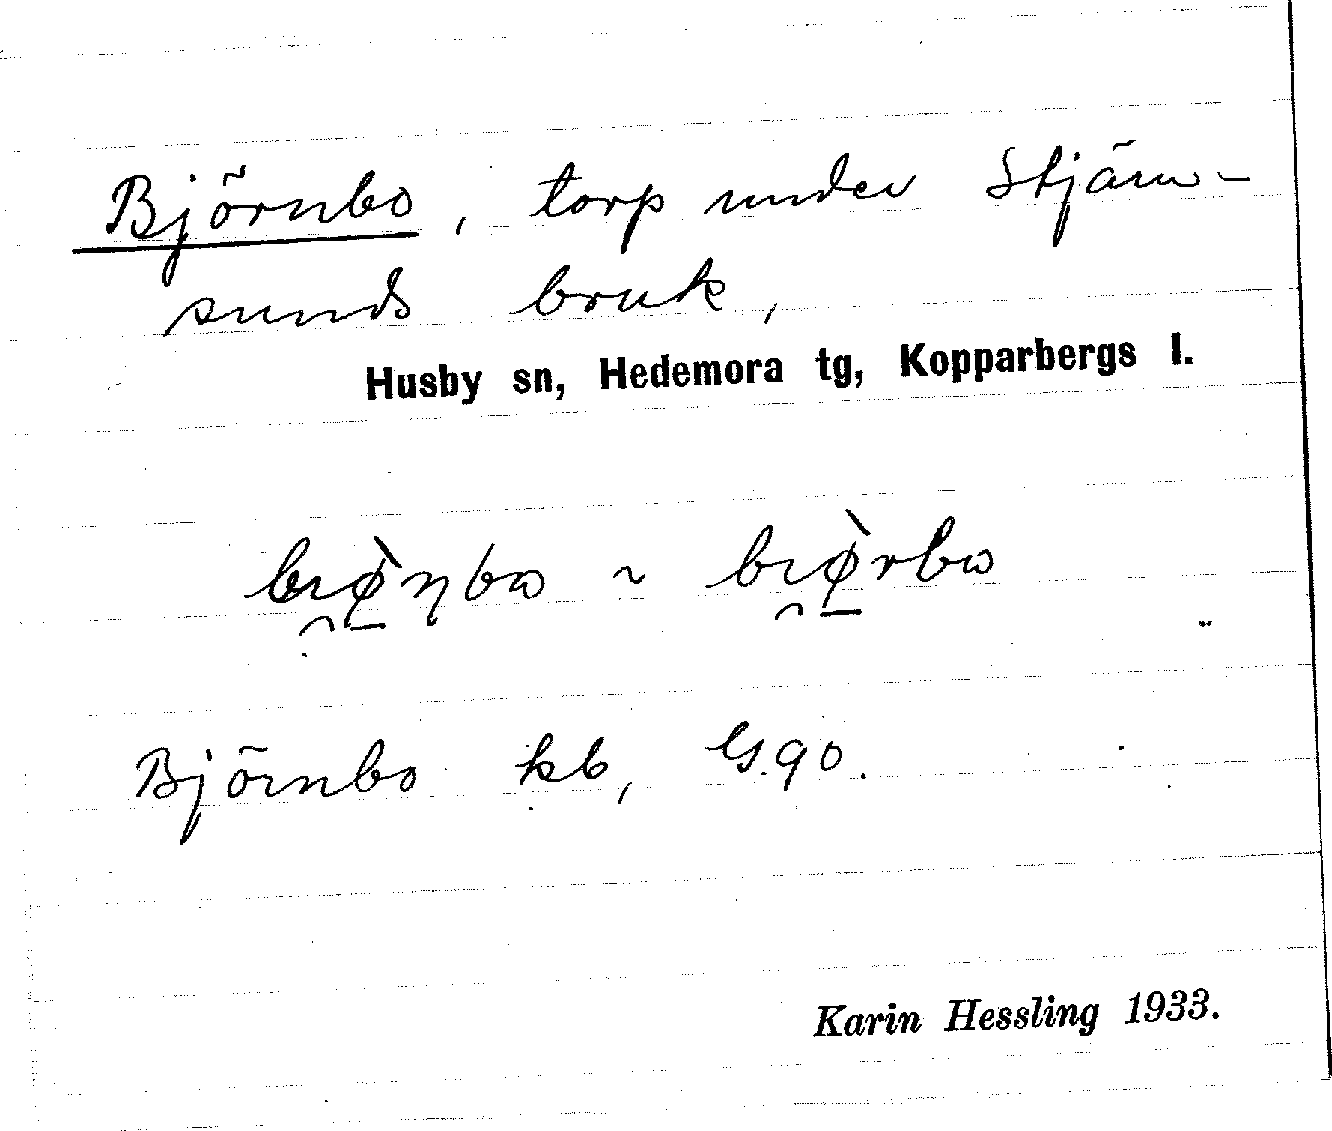 Björnbo, torp under Stjärn-
sunds bruk,
Husby sn, Hedemora tg, Kopparbergs l.
bi̯ø̱̀ɳbω ~ bi̯ø̱̀rbω
Björnbo kb, G.90.
Karin Hessling 1933.